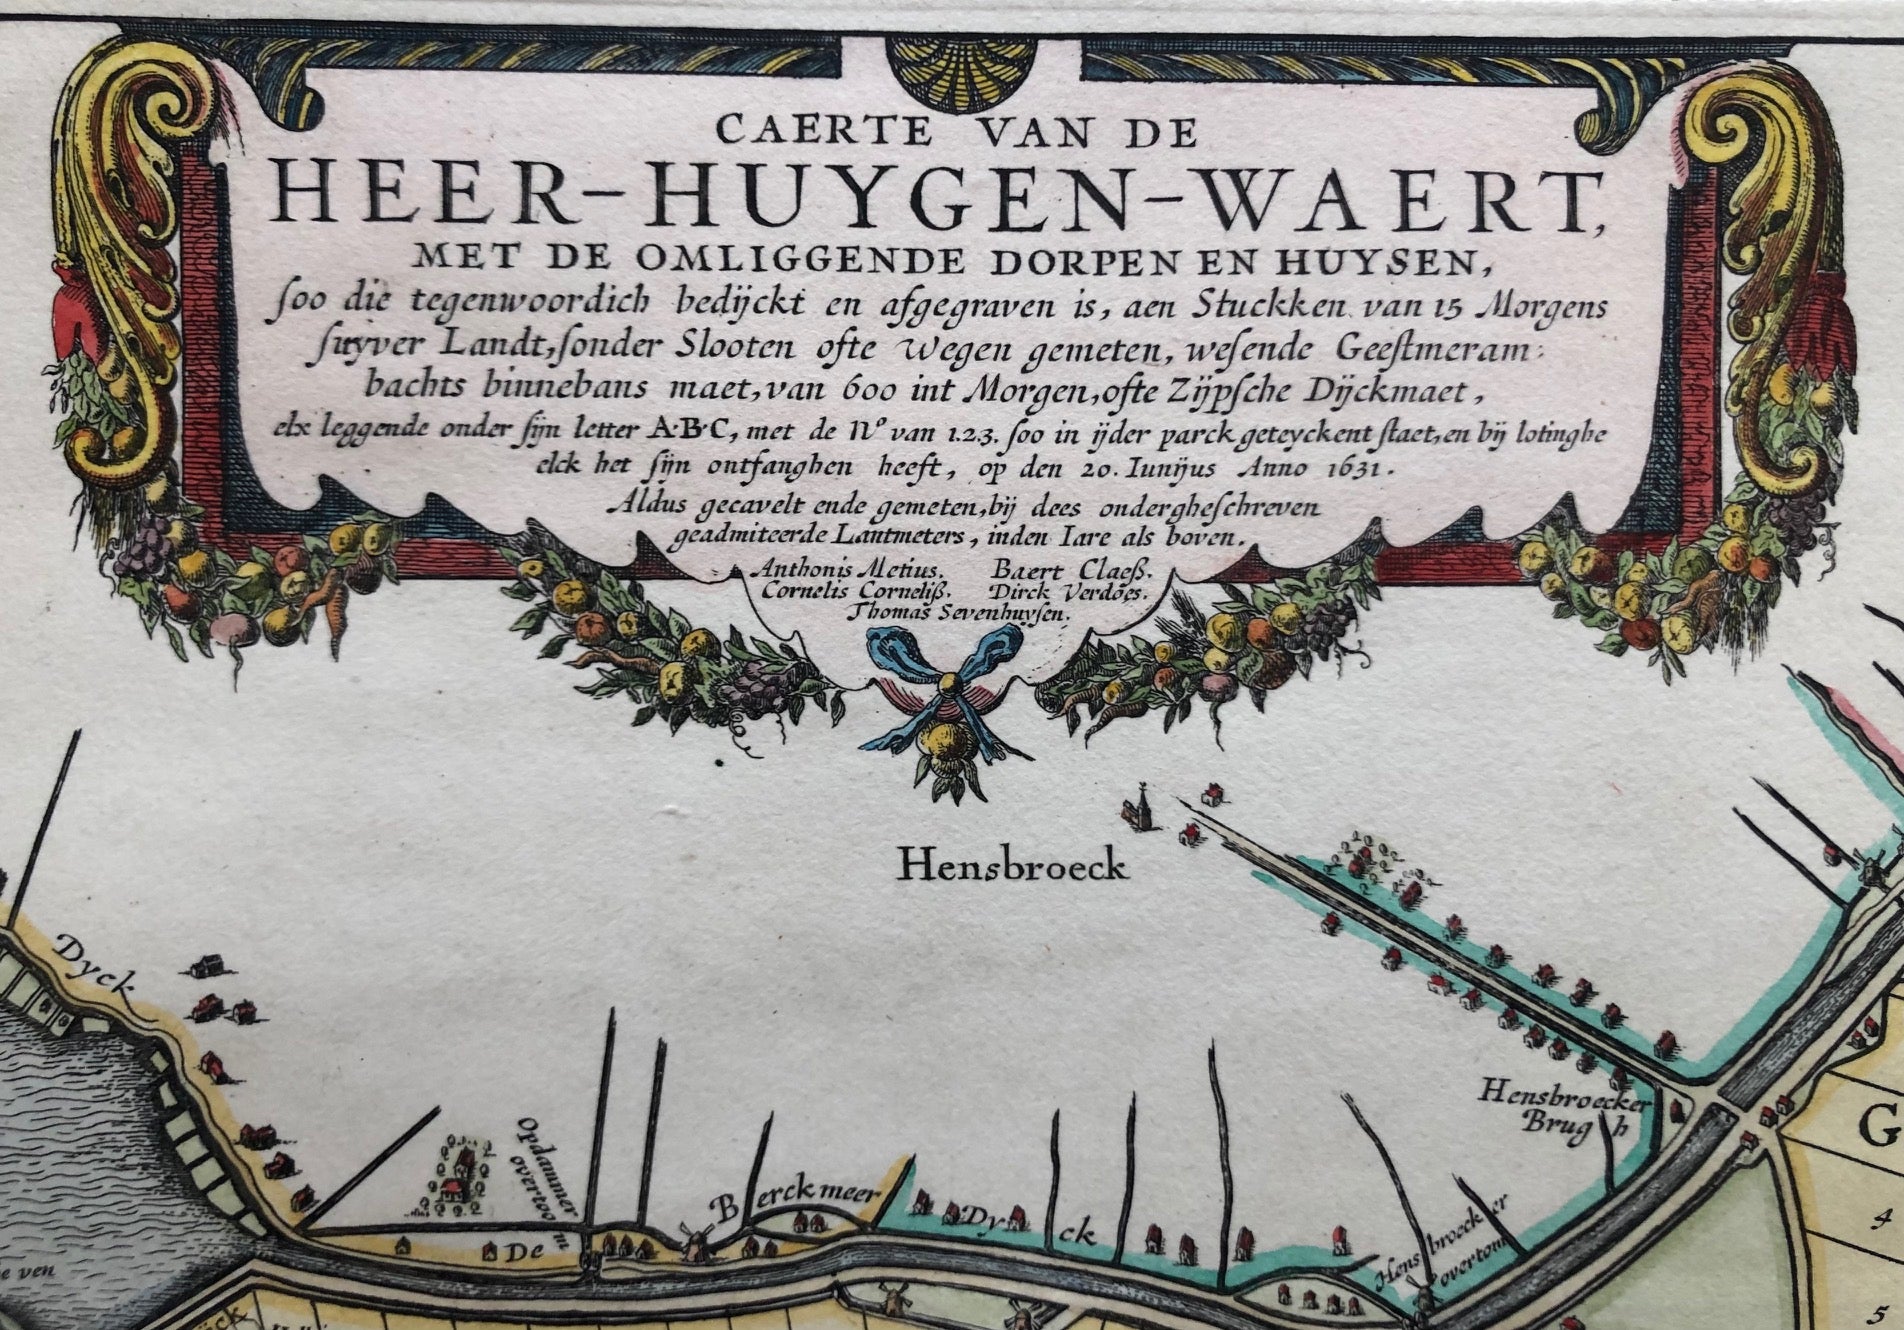 CAERTE VAN DE
HEER-HUYGEN-WAERT,
MET DE OMLIGGENDE DORPEN EN HUYSEN,
soo die tegenwoordich bedijckt en afgegraven is, aen Stuckken van 15 Morgens
suyver Landt, sonder Slooten ofte Wegen gemeten, wesende Geestmeram:
bachts binnebans maet, van 600 int Morgen, ofte Zijpsche Dijckmaet,
elx leggende onder sijn letter A·B·C, met de No van 1.2.3. soo in ijder parck geteyckent staet, en bij lotinghe
elck het sijn ontfanghen heeft, op den 20. Iunijus Anno 1631.
Aldus gecavelt ende gemeten, bij dees ondergheschreven
geadmiteerde Lantmeters, inden Iare als boven.
Anthonis Metius. Baert Claeß.
Cornelis Corneliß. Dirck Verdoes.
Thomas Sevenhuysen.
Hensbroeck
Dyck
Hensbroecker
Brugh
G
Opdammer
overtoom
Berckmeer
De
Dyck
Hensbroecker
overtom
4
5
e ven